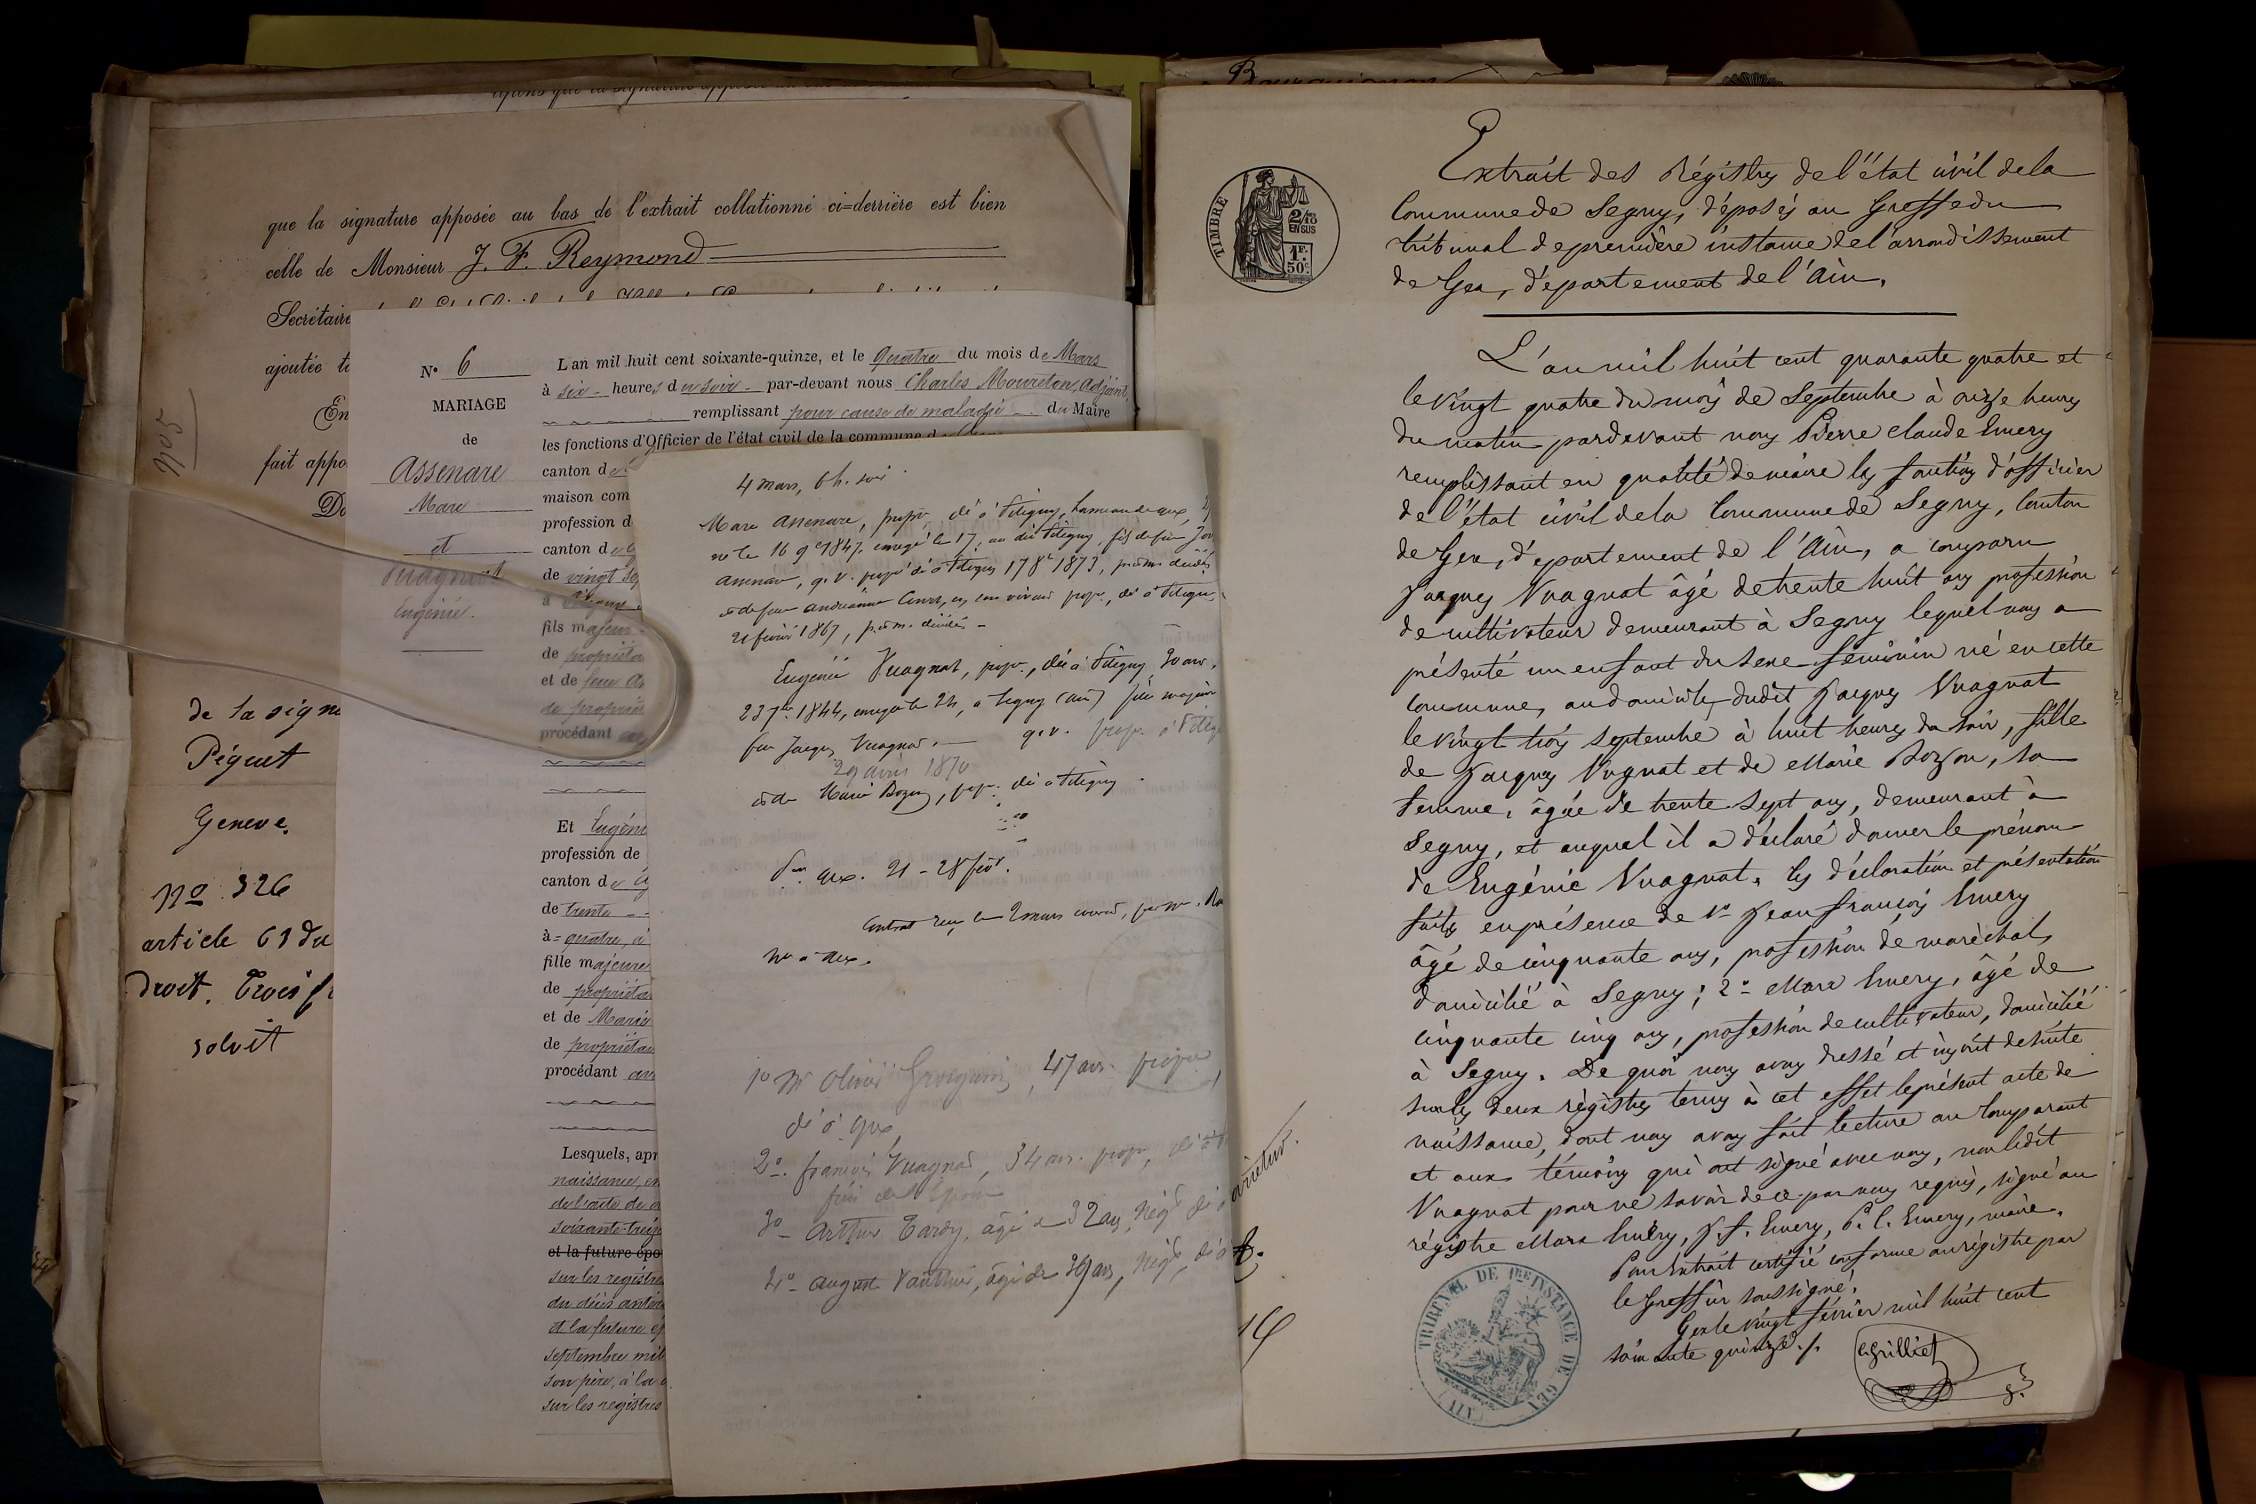 que la signature apposée au bas de l'extrait collationné ci=derrière est bien
celle de Monsieur J. F. Reymond
Secrétaire
ajoutée
En
fait appo
905
de la signa
Péquet
Genève.
No 326
article 61 du
droit. Trois f
solvit
No 6
MARIAGE
de
Assenare
Marc
et
Vuagnat
Eugénie.
L'an mil huit cent soixante-quinze, et le quatre du mois de Mars
à six heures du soir par-devant nous Charles Moureton, adjoint,
remplissant pour cause de maladie du Maire
les fonctions d'Officier de l'état civil de la commune d
canton d
maison com
profession d
canton d
de vingt se
à
fils majeur
de proprieta
et de feu
de proprieta
procédant
Et Eugéni
profession de
canton de
de trente
à quatre, à
fille majeure
de propriéta
et de Marie
de propriétai
procédant
Lesquels, apr
naissance, en
de l'acte de
soixante-treiz
et la future épo
sur les registre
du décès
et la future é
septembre mil
son père, à la
sur les registres
4 mars, 6 h. soir
Marc Assenare, propre, dt à Pitegny, hameau de Gex, 2
né le 16 9e 1847, enregé le 17, au dit Pitegny, fils de feu
Assenare, q. v. propre dt à Pitegny 17 8e 1873,
& de feu Andréanne en son vivant propre, dt à Pitegny,
21 février 1867,
Eugénie Vuagnat, propre, dt à Pitegny, 30 ans,
23 7bre 1844, enregé le 24, à Segny (ain) fille majeure
feu Jacques Vuagnat. q. v. propre à Piteg
29 avril 1870
& de Marie Bozon, propre dt à Pitegny.
Gex. 21 - 28 fév.
Contrat reçu le 2 mars courant, par Me.
Nre à Gex.
1o Mr Olivier 47 ans. propre
dt à Gex,
2o. françois Vuagnat, 34 ans. propre, dt à
3o Arthur Tardy, âgé de 32 ans, négt, dt à
4o- August Vauthier, âgé de 39 ans, négt, dt à
TIMBRE
2/10
EN SUS
1F.
50c
Extrait des Régistres de l'état civil de la
Commune de Segny, déposés au Greffe du
tribunal de première instance de l'arrondissement
de Gex, département de l'Ain.
L'an mil huit cent quarante quatre et
le vingt quatre du mois de Septembre à onze heures
du matin pardevant nous Pierre Claude Emery
remplissant en qualité de maire les fonctions d'officier
de l'état civil de la Commune de Segny, Canton
de Gex, département de l'Ain, a comparu
Jacques Vuagnat âgé de trente huit ans profession
de cultivateur demeurant à Segny lequel nous a
présenté un enfant du sexe féminin né en cette
Commune, au domicile dudit Jacques Vuagnat
le vingt trois septembre à huit heures du soir, fille
de Jacques Vuagnat et de Marie Bozon, sa
femme, âgée de trente sept ans, demeurant à
Segny, et auquel il a déclaré donner le prénom
de Eugénie Vuagnat. les déclaration et présentation
faites en présence de 1o Jean françois Emery
âgé de cinquante ans, profession de maréchal,
domicilié à Segny; 2o Marx Emery, âgé de
cinquante cinq ans, profession de cultivateur, domicilié
à Segny. De quoi nous avons dressé et inscrit de suite
sur les deux régistres tenus à cet effet le présent acte de
naissance, dont nous avons fait lecture au Comparant
et aux témoins qui ont signé avec nous, non ledit
Vuagnat pour ne savoir de ce par nous requis, signé au
régistre Marx Emery, J. f. Emery, P. C. Emery, maire.
Pour Extrait certifié conforme au régistre par
le Greffier soussigné.
Gex le vingt février mil huit cent
soixante quinze./.
Grilliet
TRIBUNAL DE 1RE INSTANCE DE GEX
(AIN)